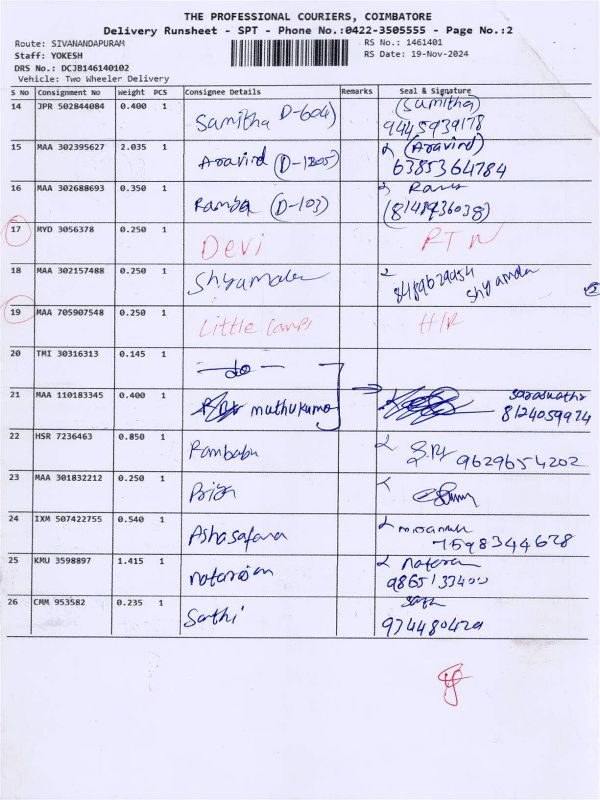 THE PROFESSIONAL COURIERS, COIMBATORE
Delivery Runsheet - SPT - Phone No.:0422-3505555 - Page No.:2
Route: SIVANANDAPURAM RS No.: 1461401
Staff: YOKESH RS Date: 19-Nov-2024
DRS No.: DCJB146140102
Vehicle: Two Wheeler Delivery
S No Consignment No Weight PCS Consignee Details Remarks Seal & Signature
14 JPR 502844084 0.400 1 Samitha D-604) (Samitha)
9445939178
15 MAA 302395627 2.035 1 Aravind (D-1205) (Aravind)
6385364784
16 MAA 302688693 0.350 1 Ramba (D-103)
(8148936038)
17 MYD 3056378 0.250 1 Devi RTN
18 MAA 302157488 0.250 1 Shyamala 8489629954 Shyamala
19 MAA 705907548 0.250 1 Little Camps H/R
20 TMI 30316313 0.145 1 — do —
21 MAA 110183345 0.400 1 muthukumar Saraswathi
8124059974
22 HSR 7236463 0.850 1 Rambabu 9629654202
23 MAA 301832212 0.250 1 Priya
24 IXM 507422755 0.540 1
7598344678
25 KMU 3598897 1.415 1 natarajan nataran
9865133400
26 CMM 953582 0.235 1 Sathi
934480429